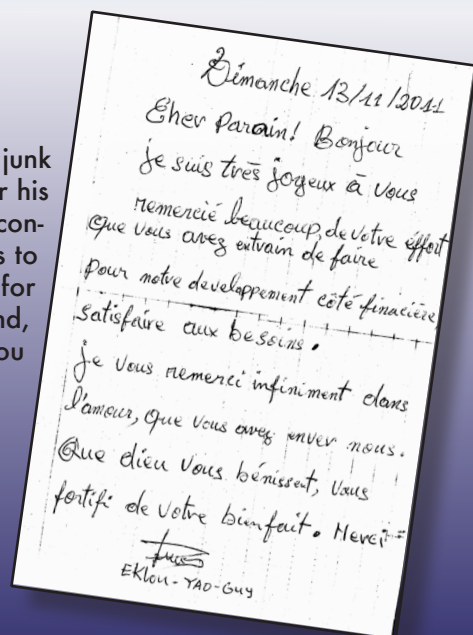 junk
r his
con-
s to
for
nd,
ou
Dimanche 13/11/2011
Cher Parain! Bonjour
je suis très joyeux à vous
remercié beaucoup, de votre éffort
que vous avez entrain de faire
pour notre developpement côté finacière,
satisfaire aux besoins.
je vous remerci infiniment dans
l'amour, que vous avez enver nous.
Que dieu vous bénissent, vous
fortifi de votre bienfait. Merci =
EKlou-YAO-Guy